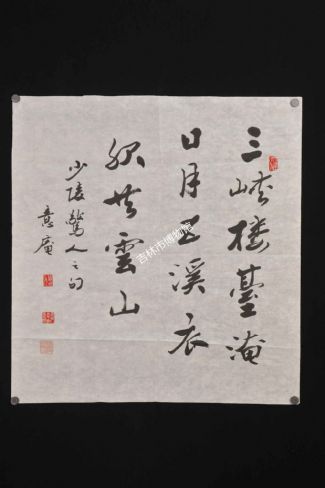 三峡楼臺淹
日月五溪衣
服共雲山
少陵驚人之句
意庵
吉林市博物馆